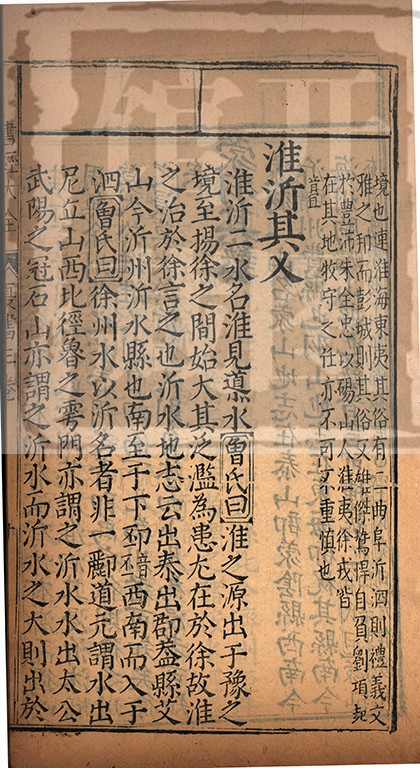 境也連淮海東夷其俗有二曲阜沂泗則禮義文
雅之邦而彭城則其俗又雄傑驁悍自負劉項起
於豐沛朱全忠以碭山人淮夷徐戎皆
在其地牧守之任亦不可不重慎也
淮沂其乂
淮沂二水名淮見導水曾氏曰淮之源出于豫之
境至揚徐之間始大其泛濫為患尤在於徐故淮
之治於徐言之也沂水地志云出泰山郡蓋縣艾
山今沂州沂水縣也南至于下邳西南而入于
泗曾氏曰徐州水以沂名者非一酈道元謂水出
尼丘山西北徑魯之雩門亦謂之沂水水出太公
武陽之冠石山亦謂之沂水而沂水之大則出於